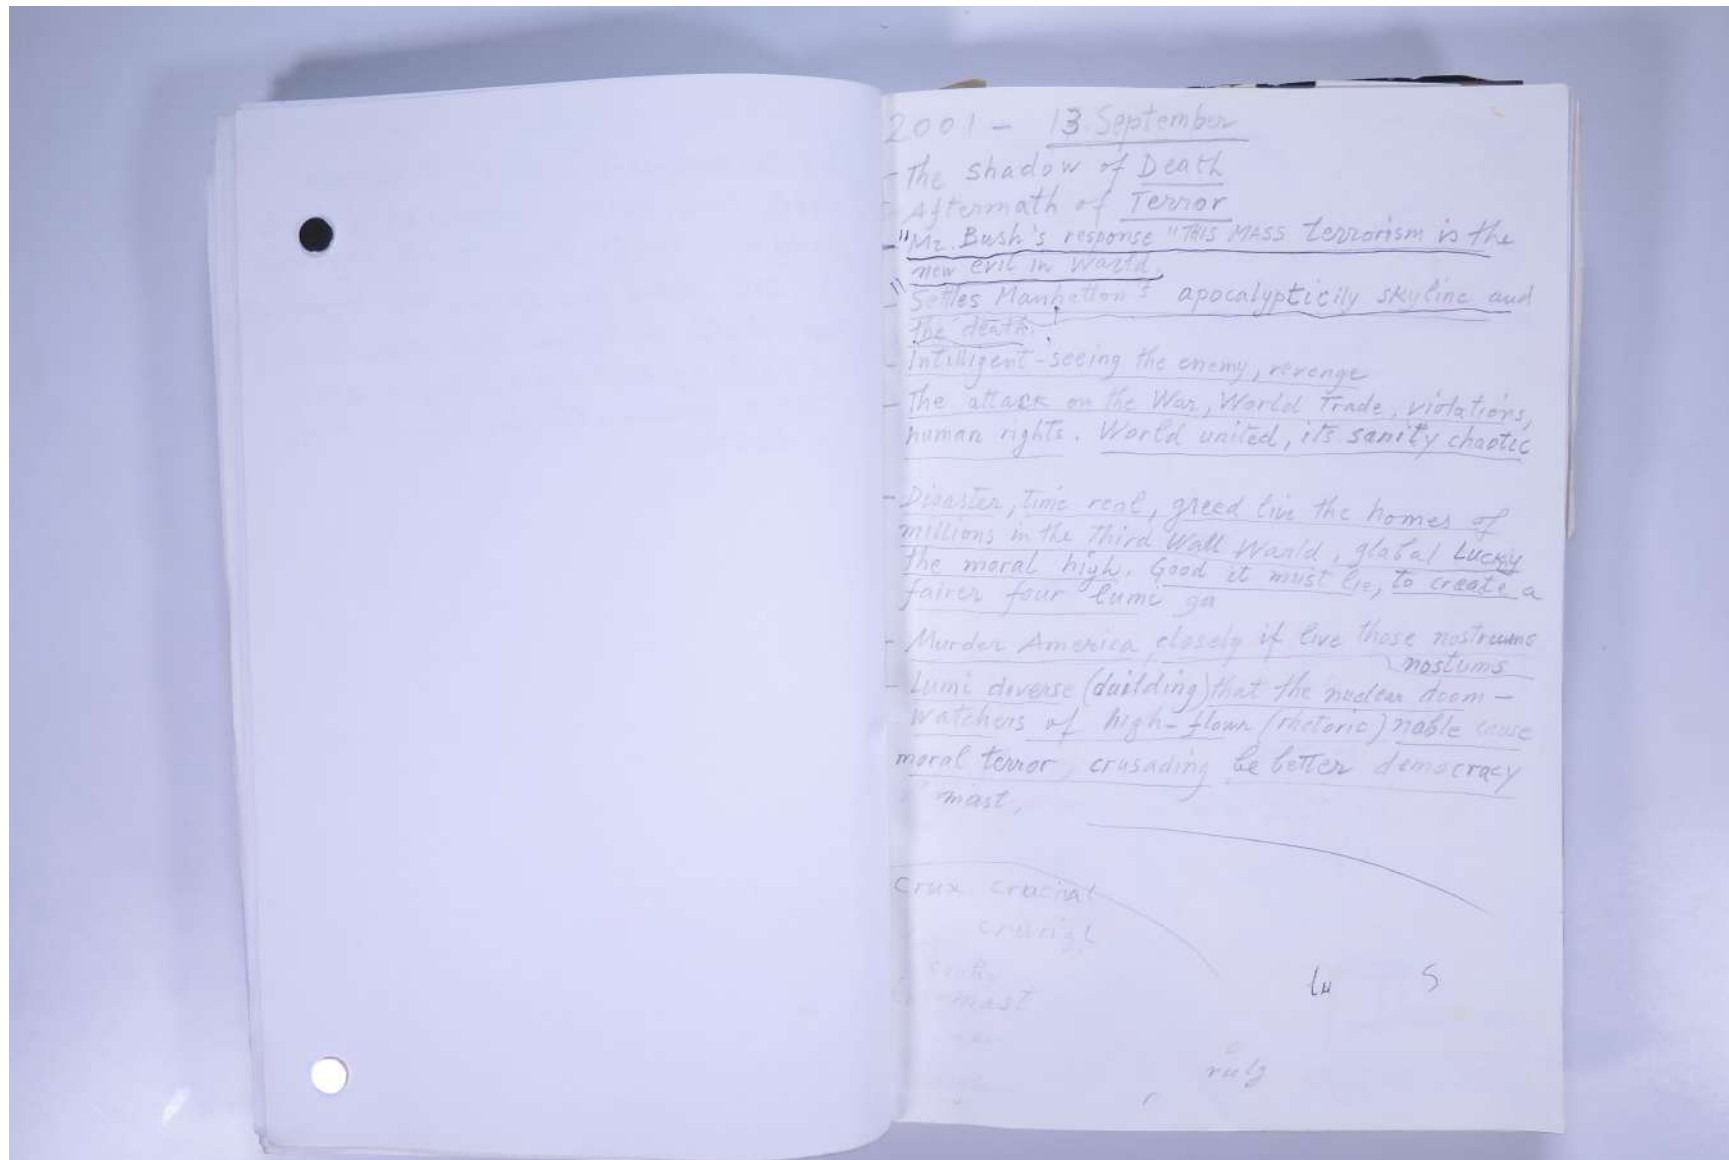 2001 - 13 September
- The shadow of Death
- Aftermath of Terror
- "Mr. Bush's response "THIS MASS terrorism is the
new evil in World.
"- Settles Manhatton's apocalypticily skyline and
the death.
- Intilligent-seeing the enemy, revenge
- The attack on the War, World Trade, violations,
human rights. World united, its sanity chaotic
- Disaster, time real, greed live the homes of
millions in the Third Wall Warld, glabal Lucky
the moral high. Good it must lie, to create a
fairer four lumi ga
- Murder America, closely if live those nostrums
nostums
- Lumi diverse (duilding) that the nuclear doom -
watchers of high-flown (rhetoric) nable cause
moral terror, crusading be better democracy
mast,
Crux crucial
mast
lu S
rulz